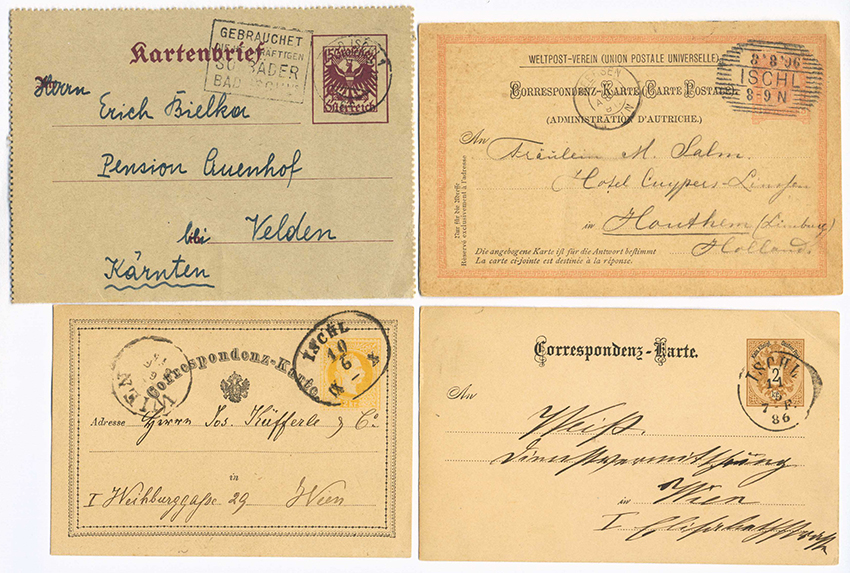 Kartenbrief
GEBRAUCHET
SOLBÄDER
BAD ISCHL
15 Groschen
Österreich
Herrn
Erich Bielka
Pension Auenhof
bei Velden
Kärnten
WELTPOST-VEREIN (UNION POSTALE UNIVERSELLE)
CORRESPONDENZ-KARTE CARTE POSTALE
(ADMINISTRATION D'AUTRICHE.)
8.8.96
ISCHL
8-9 N
An
Fräulein M. Salm.
Hotel Cuypers-
in Houthem (Limburg)
Holland
Nur für die Adresse
Réservé exclusivement à l'adresse
Die angebogene Karte ist für die Antwort bestimmt
La carte ci-jointe est destinée à la réponse.
Correspondenz-Karte
WIEN
ISCHL
10
6
Adresse Herrn Jos. Küfferle & Co
in
I Weihburggasse 29 Wien
Correspondenz-Karte.
2
ISCHL
86
An
Weiß.
Dienstvermittlung
in Wien
I Elisabethstrasse